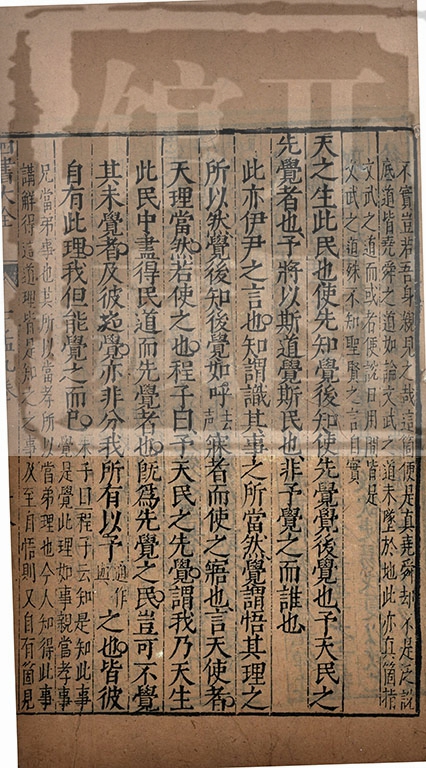 不實豈若吾身親見之哉這箇便是真堯舜却不是泛說
底道皆堯舜之道如論文武之道未墜於地此亦真箇指
文武之道而或者便說日用間皆是
文武之道殊不知聖賢之言自實
天之生此民也使先知覺後知使先覺覺後覺也予天民之
先覺者也予將以斯道覺斯民也非予覺之而誰也
此亦伊尹之言也知謂識其事之所當然覺謂悟其理之
所以然覺後知後覺如呼去聲寐者而使之寤也言天使者
天理當然若使之也程子曰予天民之先覺謂我乃天生
此民中盡得民道而先覺者也旣爲先覺之民豈可不覺
其未覺者及彼之覺亦非分我所有以予通作之也皆彼
自有此理我但能覺之而已
朱子曰程子云知是知此事
覺是覺此理如事親當孝事
兄當弟事也其所以當孝所以當弟理也今人知得此事
講解得這道理皆是知之之事及至自悟則又自有箇見
書大全